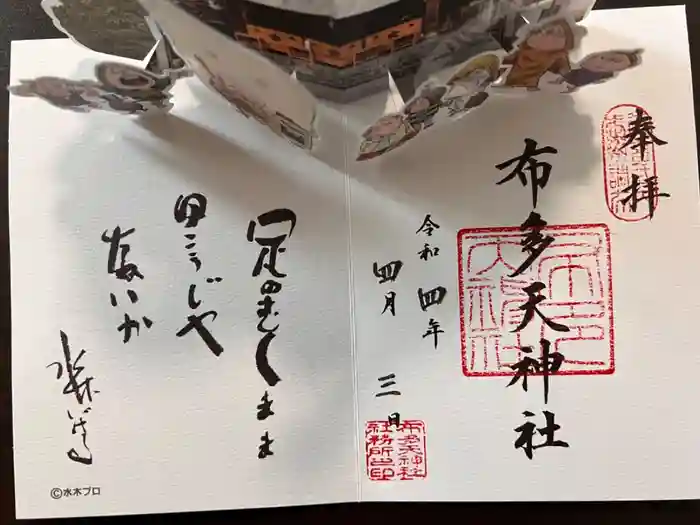 奉拝
布多天神社
令和四年
四月三日
布多天神社
社務所之印
足のむくまま
思こうじゃ
ないか
水木しげる
©水木プロ